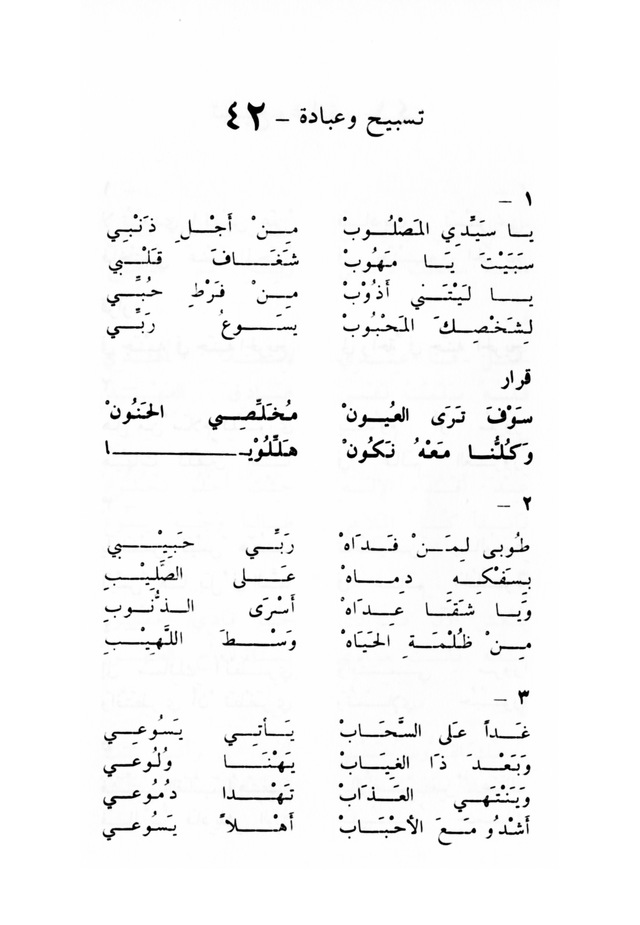 تسبيح وعبادة - ٤٢
١ -
يا سَيِّدِي المَصْلُوبْ مِنْ أَجْلِ ذَنْبِي
سَبَيْتَ يَا مَهُوبْ شَغَافَ قَلْبِي
يا لَيْتَنِي أَذُوْبْ مِنْ فَرْطِ حُبِّي
لِشَخْصِكَ المَحْبُوبْ يسوعُ رَبِّي
قرار
سَوْفَ تَرَى العيونْ مُخَلِّصِي الحَنُونْ
وَكُلُّنا مَعْهُ نَكُونْ هَلِّلُوْيا
٢ -
طوبى لِمَنْ فَدَاهْ رَبِّي حَبِيْبِي
بِسَفْكِهِ دِماهْ عَلى الصَّلِيْبِ
وَيا شَقَا عِداهْ أَسْرَى الذُّنُوبِ
مِنْ ظُلْمَةِ الحَيَاهْ وَسْطَ اللَّهِيْبِ
٣ -
غَداً عَلى السَّحَابْ يَأتِي يَسُوعِي
وَبَعْدَ ذَا الغِيَابْ يَهْنَا وُلُوعِي
وَيَنْتَهِي العَذَابْ تَهْدا دُمُوعِي
أَشْدُو مَعَ الأَحْبَابْ أَهْلاً يَسُوعِي